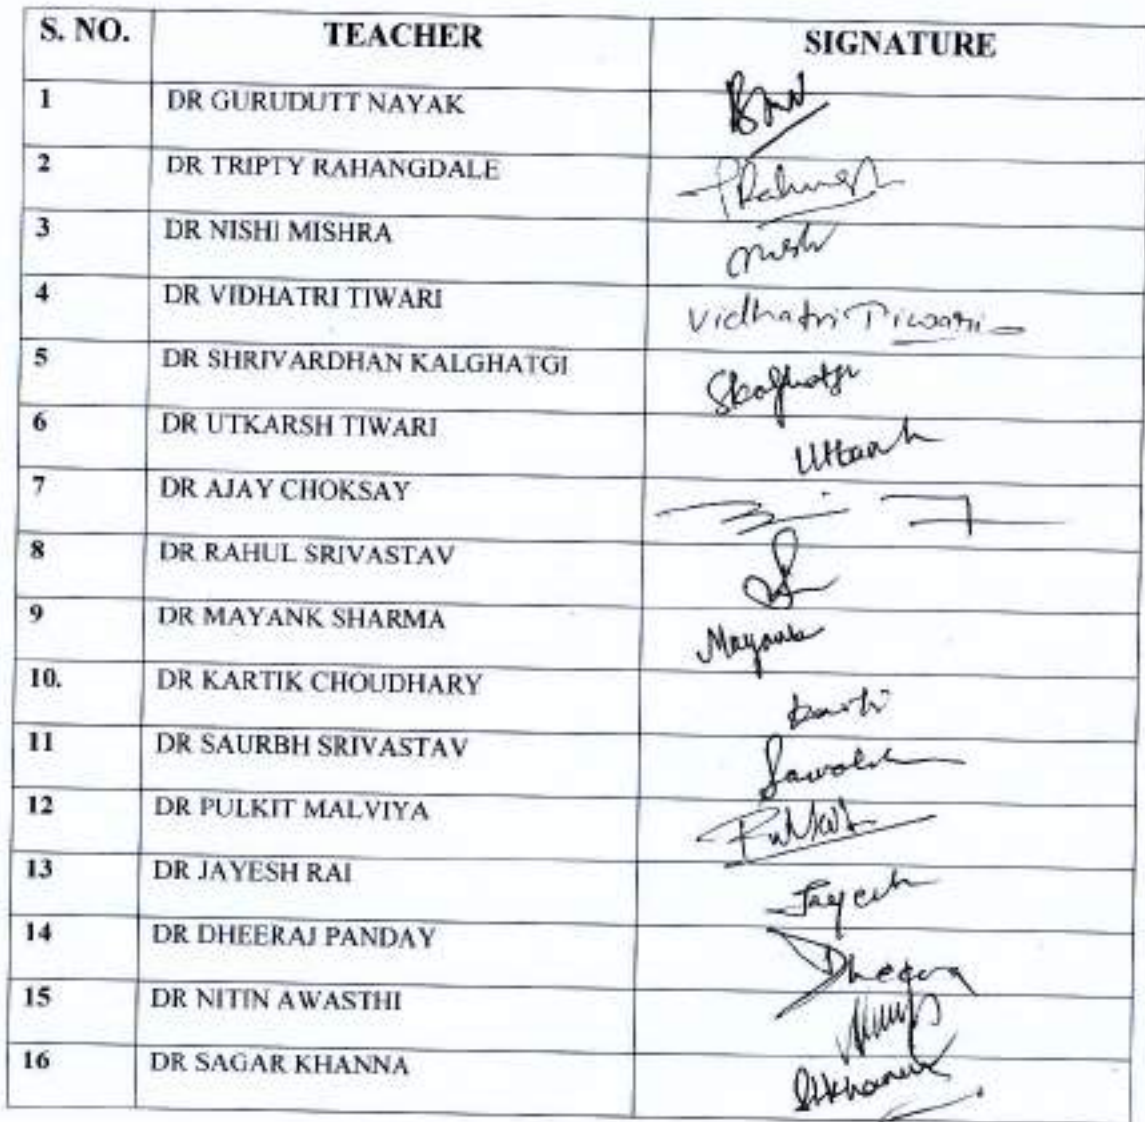 S. NO. TEACHER SIGNATURE
1 DR GURUDUTT NAYAK
2 DR TRIPTY RAHANGDALE
3 DR NISHI MISHRA
4 DR VIDHATRI TIWARI Vidhatri Tiwari
5 DR SHRIVARDHAN KALGHATGI Skalghatgi
6 DR UTKARSH TIWARI
7 DR AJAY CHOKSAY
8 DR RAHUL SRIVASTAV
9 DR MAYANK SHARMA Mayank
10. DR KARTIK CHOUDHARY
11 DR SAURBH SRIVASTAV
12 DR PULKIT MALVIYA Pulkit
13 DR JAYESH RAI Jayesh
14 DR DHEERAJ PANDAY Dheeraj
15 DR NITIN AWASTHI
16 DR SAGAR KHANNA